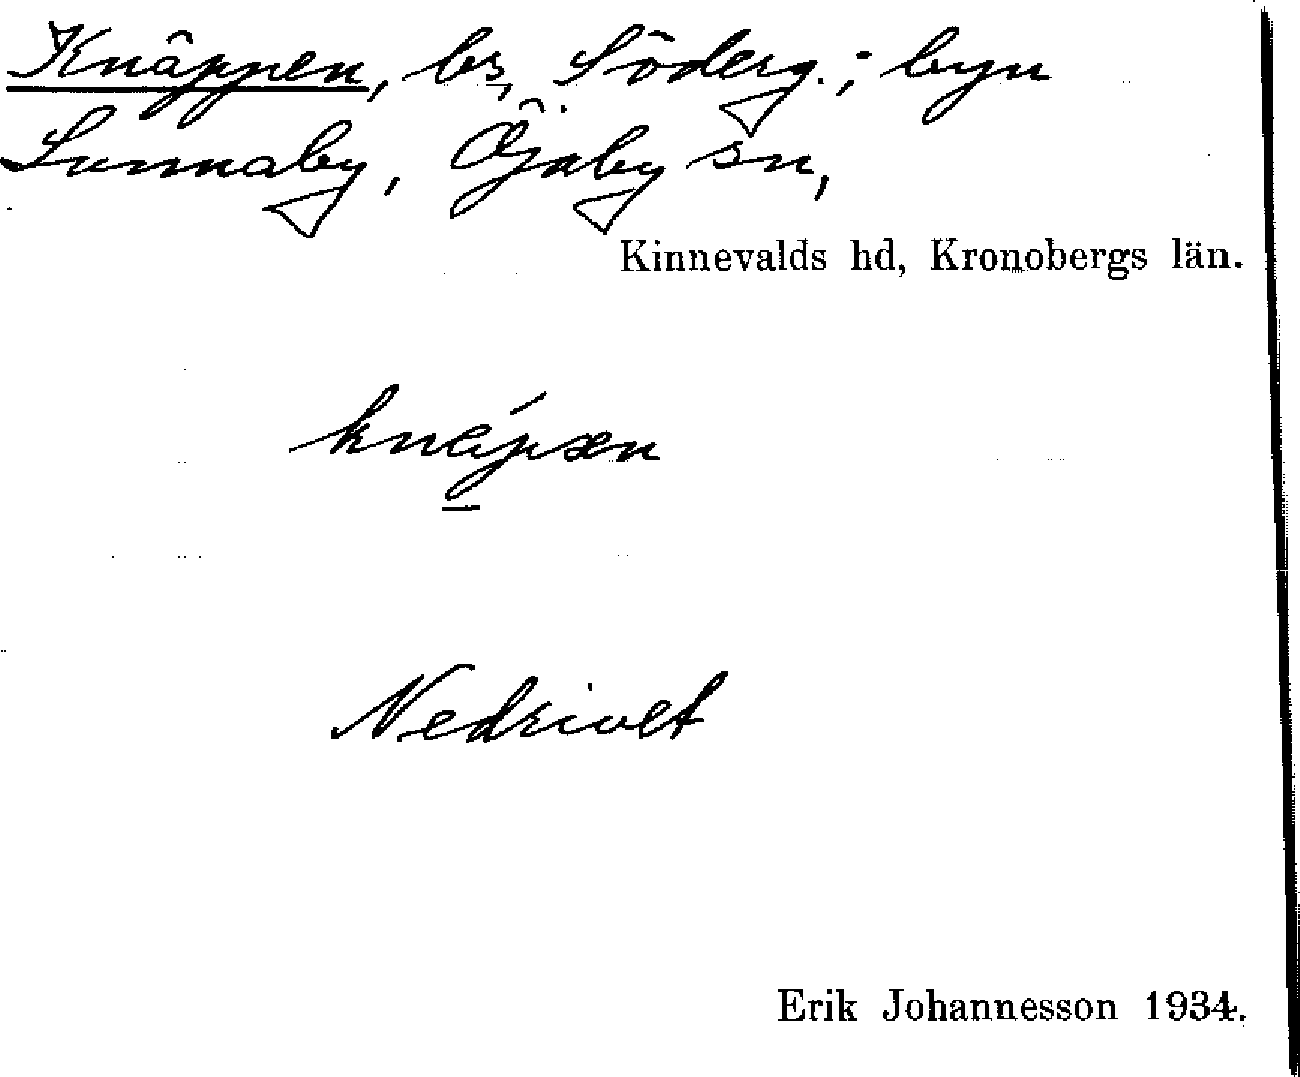 Knäppen, bs, Söderg.; byn
Sunnaby, Öjaby sn,
Kinnevalds hd, Kronobergs län.
Nedrivet
Erik Johannesson 1934.